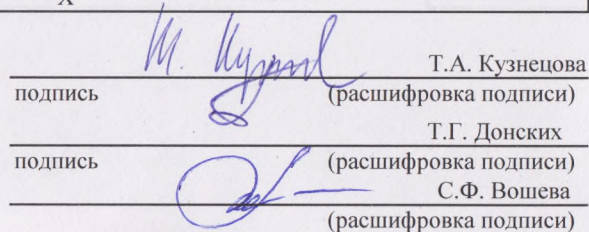 х
Т.А. Кузнецова
подпись (расшифровка подписи)
Т.Г. Донских
подпись (расшифровка подписи)
С.Ф. Вошева
(расшифровка подписи)